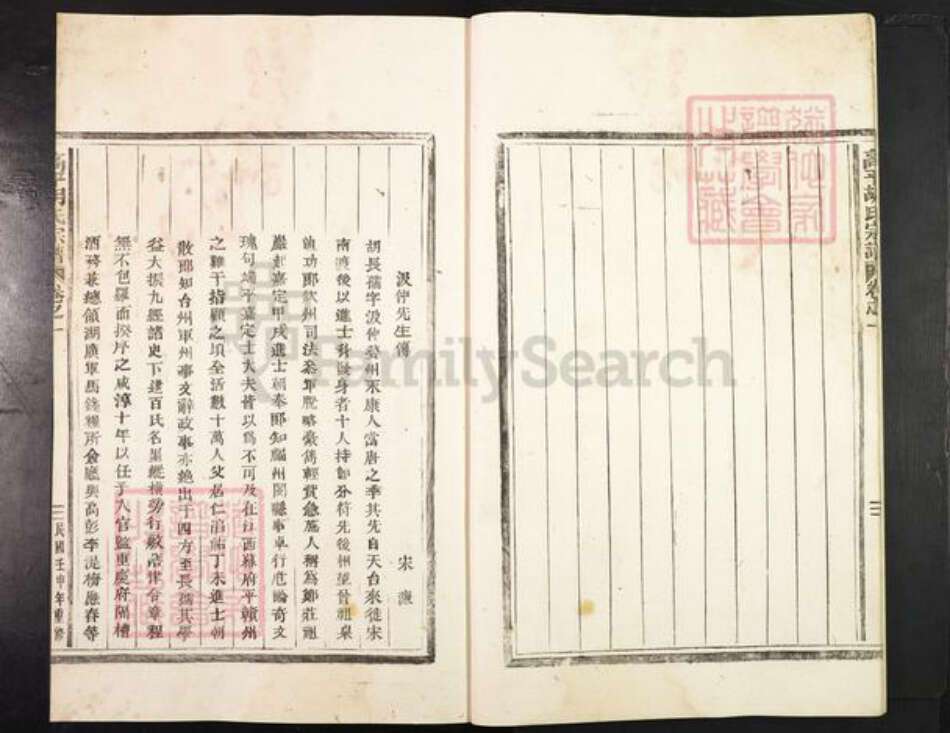 高平胡氏宗譜
汲仲先生傳
宋濂
胡長孺字汲仲婺州永康人當唐之季其先自天台來徙宋
南渡後以進士科發身者十人持節分符先後相望曾祖杲
迪功郎欽州司法參軍脫略豪雋輕貲急施人稱為鄭莊祖
巖起嘉定甲戌進士朝奉郎知福州閩縣事卓行危論奇文
瑰句端平嘉定士大夫皆以為不可及在江西幕府平贛州
之難于指顧之頃全活數十萬人父居仁淳祐丁未進士朝
散郎知台州軍州事文辭政事亦絶出于四方至長孺其學
益大振九經諸史下逮百氏名墨縱橫旁行敷落律令章程
無不包羅而揆序之咸淳十年以任子入官監重慶府隔槽
酒務兼總領湖廣軍馬錢糧所僉廳與高彭李湜梅應春等
高平胡氏宗譜
卷之一
民國壬申年重修
FamilySearch